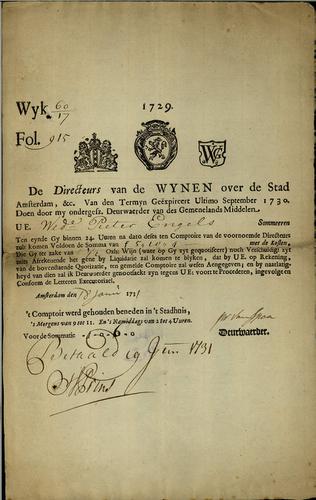 Wyk 60/17
1729.
Fol. 915
WG
De Directeurs van de WYNEN over de Stad
Amsterdam, &c. Van den Termyn Geëxpireert Ultimo September 1730.
Doen door my ondergesz. Deurwaerder van des Gemenelands Middelen.
UE. Wed Pieter Engels Sommeeren
Ten eynde Gy binnen 24. Uuren na dato deses ten Comptoire van de voornoemde Directeurs
zult komen Voldoen de Somma van met de Kosten,
Die Gy ter zake van Oude Wijn (waer op Gy zyt gequotiseert) noch Verschuldigt zyt
mits Afrekenende het gene by Liquidatie zal komen te blyken, dat by UE. op Rekening
van de bovenstaende Quotizatie, ten gemelde Comptoire zal wesen Aengegeven; en by naerlatig-
heyd van dien zal ik Deurwaerder genootsaekt zyn tegens UE: voort te Procederen, ingevolgen
Conform de Letteren Executoriael.
Amsterdam den 18 Juni 1731
't Comptoir werd gehouden beneden in 't Stadhuis,
's Morgens van 9 tot 11. En 's Namiddags 2 tot 4 Uuren.
Voor de Sommatie - 0 - 6 - 0
Deurwaerder.
Betaald 19 Juni 1731
Prins